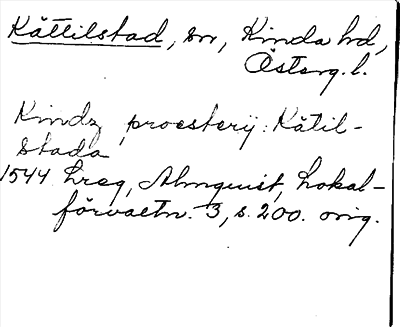 Kättilstad, sn, Kinda hd,
Österg. l.
Kindz proesterij: Kätil-
stada
1544 hreg, Almquist, Lokal-
förvaltn. 3, s. 200. orig.